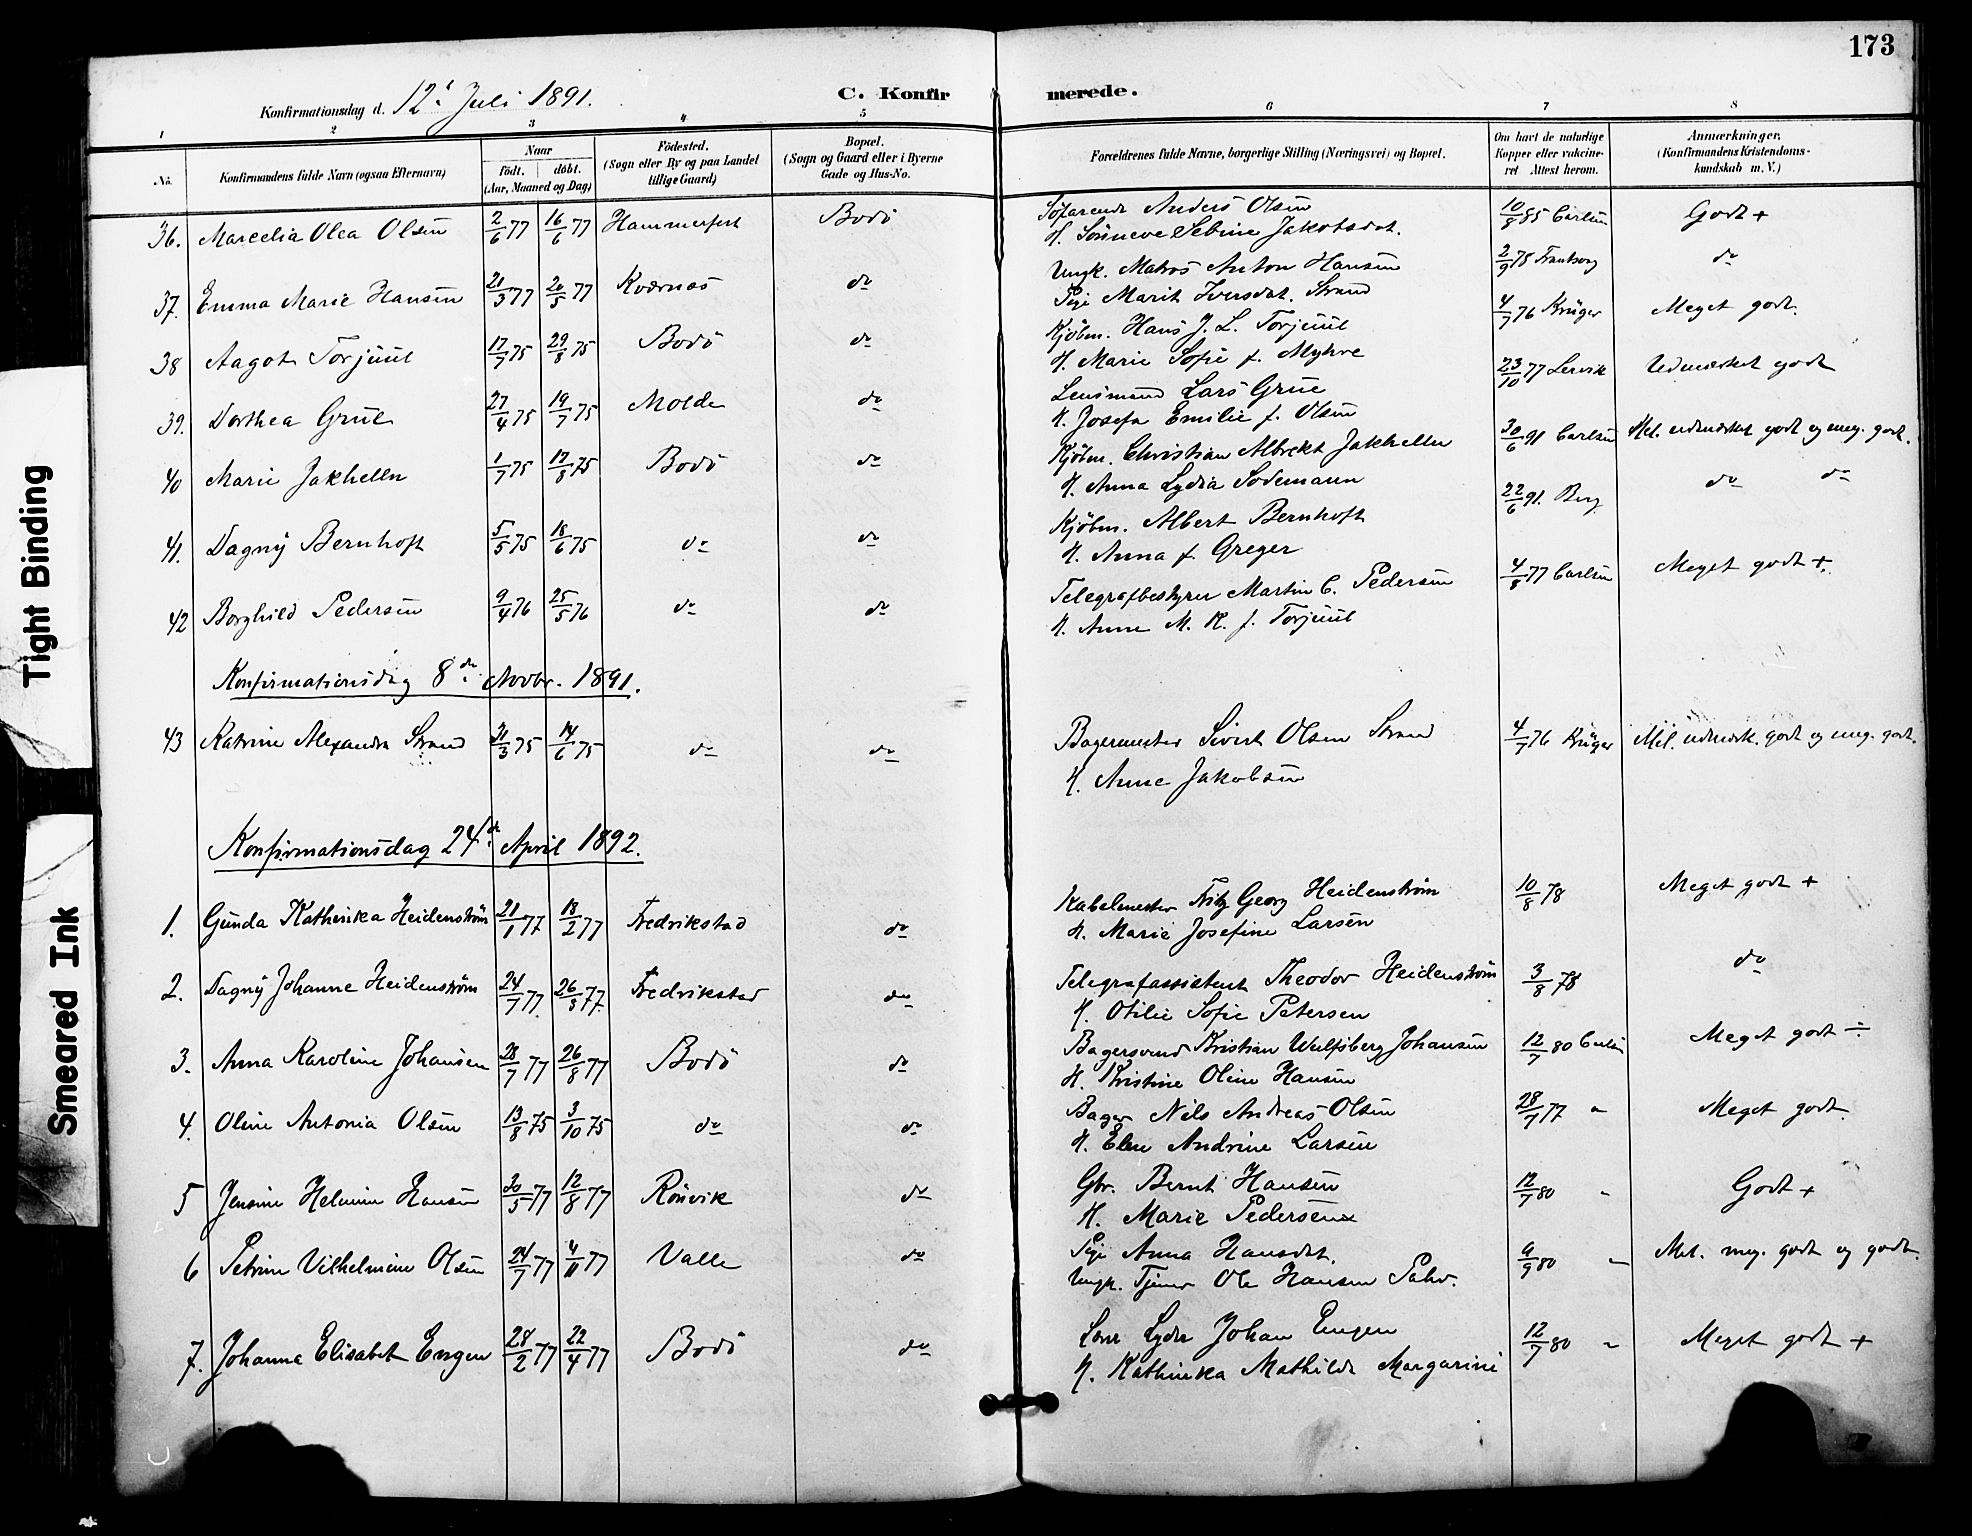 173
Konfirmationsdag d. 12. Juli 1891.
C. Konfirmerede.
1 2 3 4 5 6 7 8
No. Konfirmandens fulde Navn (ogsaa Efternavn) Naar født. døbt. (Aar, Maaned og Dag) Fødested. (Sogn eller By og paa Landet tillige Gaard) Bopæl. (Sogn og Gaard eller i Byerne Gade og Hus-No. Forældrenes fulde Navne, borgerlige Stilling (Næringsvei) og Bopæl. Om havt de naturlige Kopper eller vakcineret Attest herom. Anmærkninger, (Konfirmandens Kristendomskundskab m. V.)
36. Marcelia Olea Olsen 2/6 77 16/6 77 Hammerfest Bodö Söfarende Anders Olsen 10/8 85 Carlsen Godt +
H. Sönneve Sebine Jakobsdat.
37. Emma Marie Hansen 21/3 77 20/5 77 Kværnæs do Ungk. Matros Anton Hansen 2/9 78 do
Pige Marit Iversdat. Strand
38 Aagot Torjuul 17/7 75 29/8 75 Bodö do Kjöbm. Hans J. L. Torjuul 4/7 76 Krüger Meget godt.
H. Marie Sofie f. Myhre
39. Dorthea Grue 27/4 75 19/7 75 Molde do Lensmand Lars Grue 23/10 77 Lervik Udmærket godt
H. Josefa Emilie f. Olsen
40 Marie Jakhelln 1/7 75 17/8 75 Bodö do Kjöbm. Christian Albrekt Jakhelln 30/6 91 Carlsen Mel. udmærket godt og meg. godt.
H. Anna Lydia Sodemann
41. Dagny Bernhoft 5/5 75 18/6 75 do do Kjöbm. Albert Bernhoft 22/6 91. Berg do do
H. Anna f. Greger
42 Borghild Pedersen 9/4 76 25/5 76 do do Telegrafbestyrer Martin C. Pedersen 4/8 77 Carlsen Meget godt +.
H. Anne M. K. f. Torjuul
Konfirmationsdag 8de Novbr. 1891.
43 Katrine Alexandra Strand 31/3 75 14/6 75 do do Bagermester Sivert Olsen Strand 4/7 76 Krüger Mel. udmærk. godt og meg. godt.
H. Anne Jakobsen
Konfirmationsdag 24de April 1892.
1. Gunda Kathinka Heidenström 21/1 77 18/2 77 Fredrikstad do Kabelmester Fritz Georg Heidenström 10/8 78 Meget godt +
H. Marie Josefine Larsen
2. Dagny Johanne Heidenström 24/7 77. 26/8 77. Fredrikstad do Telegrafassistent Theodor Heidenström 3/8 78 do
H. Otilie Sofie Petersen
3. Anna Karoline Johansen 28/7 77 26/8 77 Bodö do Bagersvend Kristian Wulfsberg Johansen 12/7 80 Carlsen Meget godt ÷
H. Kristine Oline Hansen
4. Oline Antonia Olsen 13/8 75 3/10 75 do do Bager Nils Andreas Olsen 28/7 77 " Meget godt
H. Elen Andrine Larsen
5 Jensine Helmine Hansen 30/5 77 12/8 77 Rönvik do Gbr. Bernt Hansen 12/7 80 " Godt +
H. Marie Pedersen
6 Petrine Vilhelmine Olsen 24/7 77 4/11 77 Valle do Pige Anna Hansdat. 9/9 80 " Mel. meg. godt og godt.
Ungk. Tjener Ole Hansen
7. Johanna Elisabet Engen 28/2 77 22/4 77 Bodö do Lyder Johan Engen 12/7 80 " Meget godt +
H. Kathinka Mathilde Margarine
Tight Binding
Smeared Ink